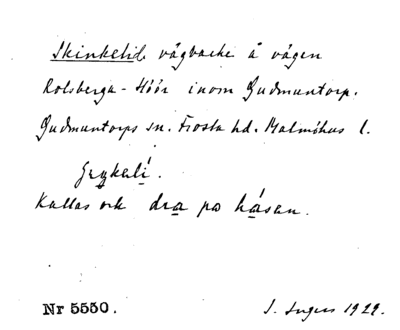 Skinkelid. vägbacke å vägen
Rolsberga - Höör inom Gudmuntorp.
Gudmuntorps sn. Frosta hd. Malmöhus l.
Kallas ock dra po hásan.
Nr 5550.
I. Ingers 1929.